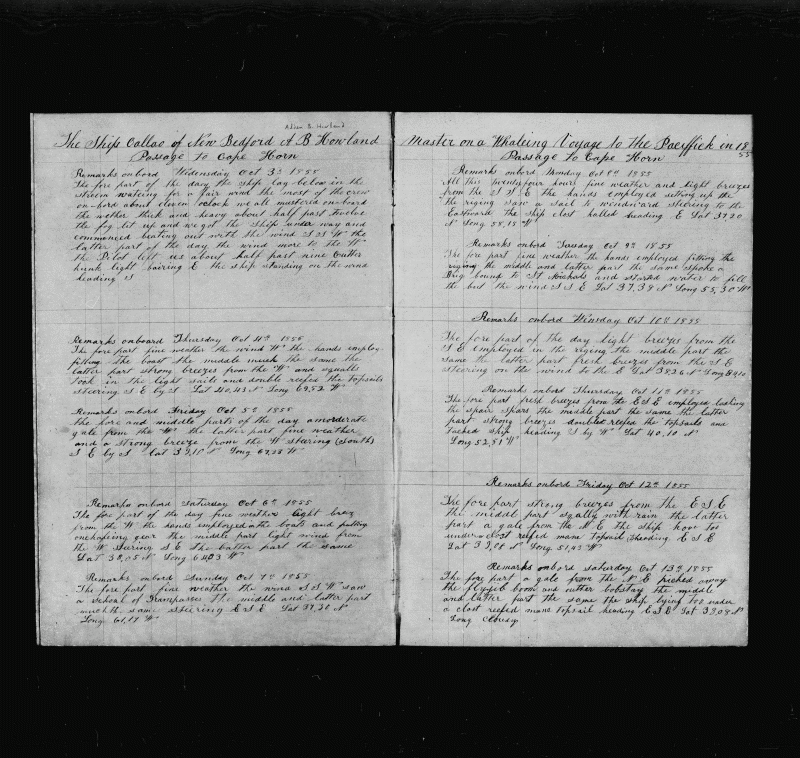 Allen B. Howland
The Ship Callao of New Bedford A B Howland
Passage to Cape Horn
Remarks onbord Widensday Oct 3d 1855
The fore part of the day the ship lay below in the
streem wateing for a fair wind the most of the crew
on-bord about eleven oclock we all musterd on bord
the wether thick and heavy about half past twelve
the fog lit up and we got the ship under way and
commenced beating out with the wind S S W the
latter part of the day the wind more to the W
the Pilot left us about half past nine Cutter
hunk light bairing E the ship standing on the wind
heading S
Remarks onboard Thursday Oct 4th 1855
The fore part fine weather the wind W the hands employ-
fitting the boats the middle much the same the
latter part strong breezes from the W and squalls
took in the light sails and double reefed the topsails
steering S E by S Lat 40,43 N Long 69,52 W
Remarks on bord Friday Oct 5th 1855
the fore and middle parts of the day amorderate
gale from the W the latter part fine weather
and a strong breeze from the W steering (South)
S E by S Lat 39,10 N Long 67,28 W
Remarks onbord Saturday Oct 6th 1855
The fore part of the day fine weather light breez
from the W the hands employed on the boats and putting
onchafeing gear the middle part light wind from
the W steering S E the latter part the same
Lat 38,05 N Long 64,03 W
Remarks onbord Sunday Oct 7th 1855
The fore part fine weather the wind S S W saw
a school of Grampasses the middle and latter part
much the same steering E S E Lat 37,30 N
Long 61,17 W
Master on a Whaleing Voyage to the Paciffick in 18
55
Passage to Cape Horn
Remarks onbord Monday Oct 8th 1855
All this twentyfour hours fine weather and light breezes
from the S S E the hands employed setting up the
the riging saw a sail to windward steering to the
Eastward the ship clost halled heading E Lat 37,20
N Long 58,15 W
Remarks onbord Tuesday Oct 9th 1855
The fore part fine weather the hands employed fitting the
riging the middle and latter part the same spoke a
Brig bound to St Michals and started water to fill
the but the wind S S E Lat 37,38 N Long 55,30 W
Remarks onbord Winsday Oct 10th 1855
The fore part of the day light breezes from the
S E employed in the riging the middle part the
same the latter part fresh breezes from the S E
steering on the wind to the E Lat 38,26 N Long 54,10
Remarks onbord Thursday Oct 11th 1855
The fore part fresh breezes from the E S E employed lashing
the spair spars the middle part the same the latter
part strong breezes double reefed the topsails and
tacked ship heading S by W Lat 40,10 N
Long 52,51 W
Remarks onbord Friday Oct 12th 1855
The fore part strong breezes from the E S E
the middle part squally with rain the latter
part a gale from the N E the ship hove too
under a clost reefed mane Topsail heading E S E
Lat 39,08 N Long 51,43 W
Remarks onbord Saturday Oct 13th 1855
The fore part a gale from the N E piched away
the flyjib boom and nether bobstay the middle
and latter part the same the ship lying too under
a clost reefed mane topsail heading E S E Lat 39,08 N
Long